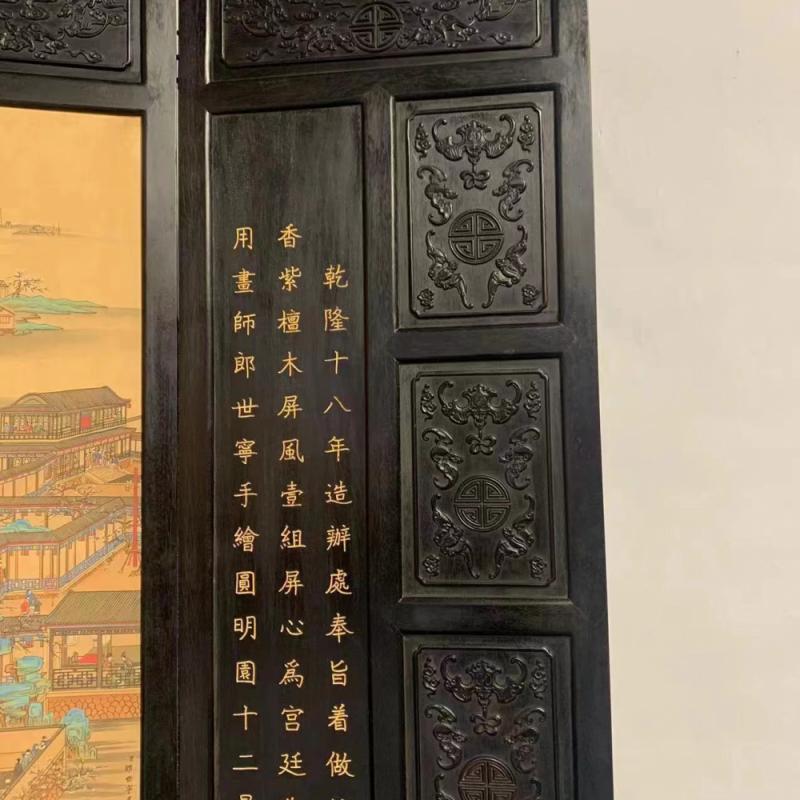 乾隆十八年造辦處奉旨着做
香紫檀木屏風壹組屏心爲宫廷
用畫師郎世寧手繪圓明園十二